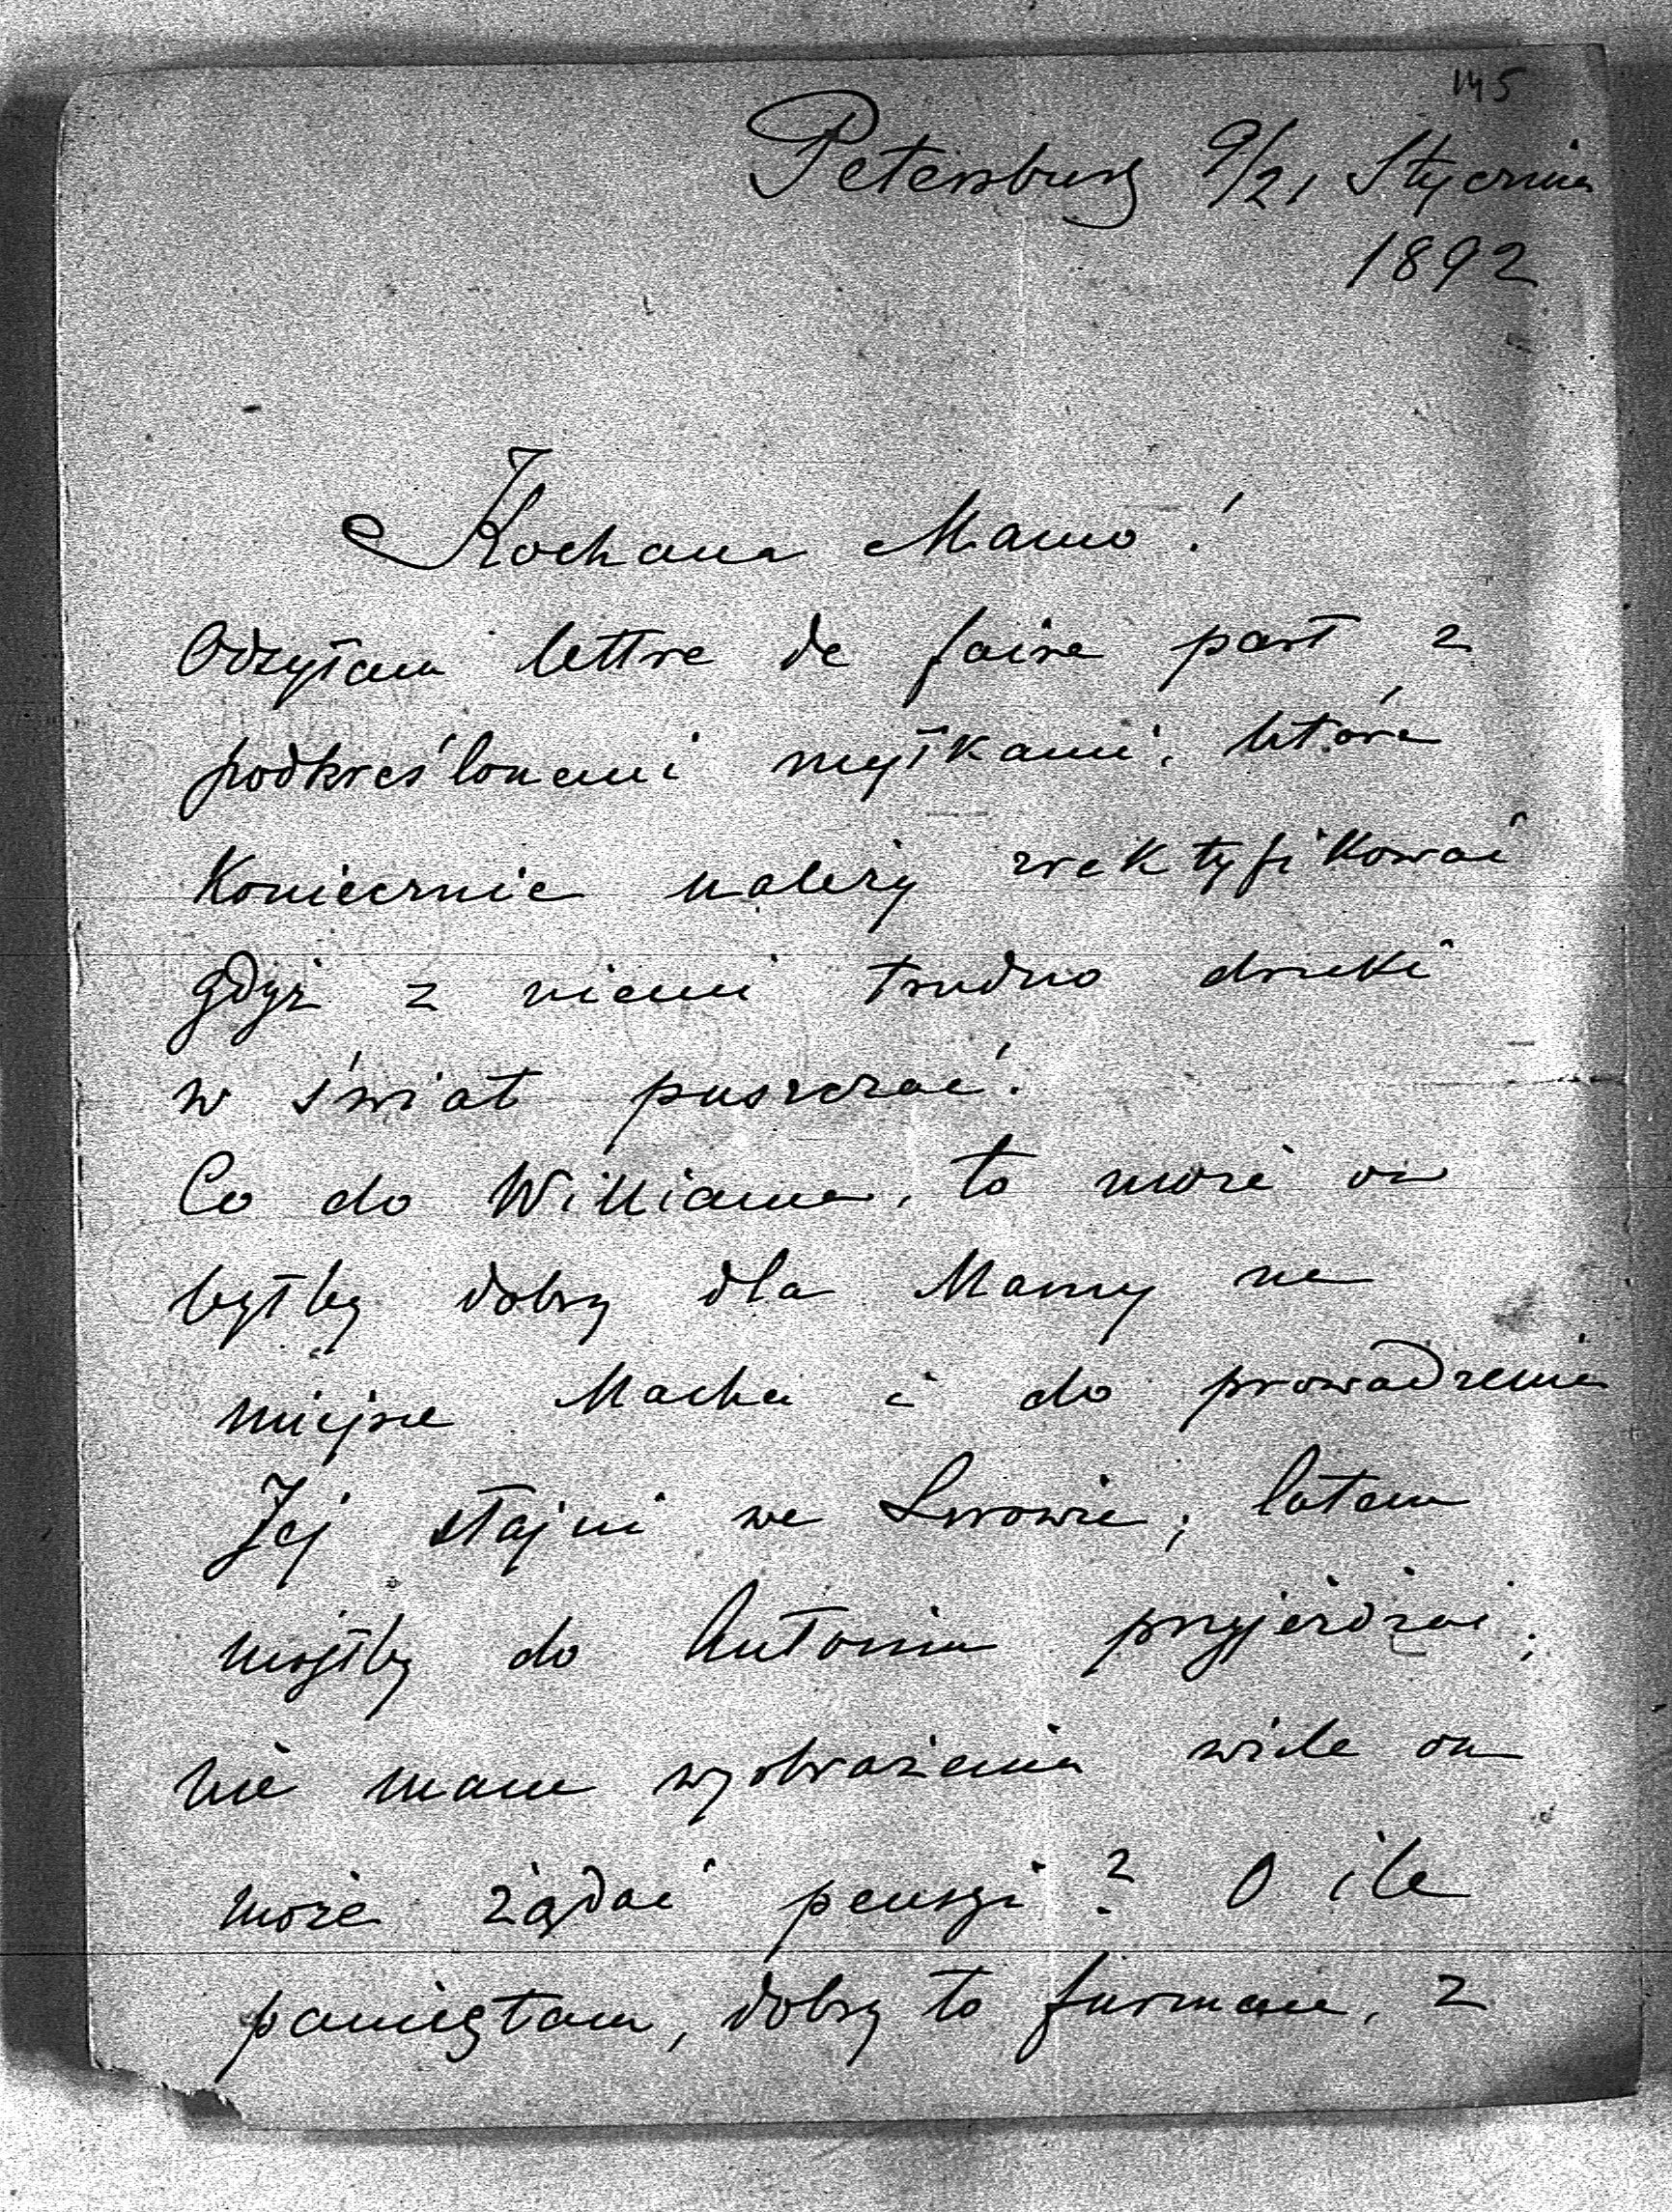 145
Petersburg 9/21 Stycznia
1892
Kochana Mamo!
Odsyłam lettre de faire part z
podkreślonemi myłkami, które
koniecznie należy zrektyfikować
gdyż z niemi trudno druki
w świat puszczać.
Co do Williama, to może on
byłby dobry dla Mamy na
miejsce Macka i do prowadzenia
Jej stajni we Lwowie; latem
mógłby do Antonin przyjeżdżać;
nie mam wyobrażenia wiele on
może żądać pensyi? O ile
pamiętam, dobry to furman, z